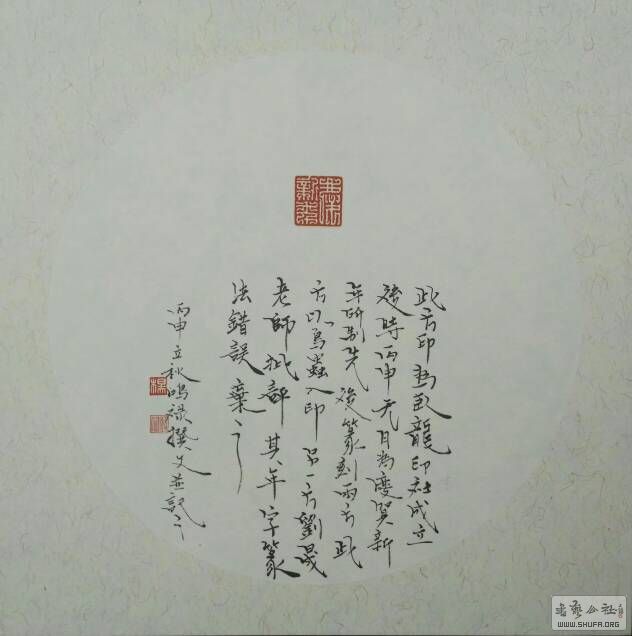 此方印為臥龍印社成立
後時丙申元月為慶賀新
年所制先後篆刻兩方此
方以鳥蟲入印另一方劉晟
老師批評其年字篆
法錯誤棄之
丙申立秋鳴祿撰文並記之
WWW.SHUFA.ORG